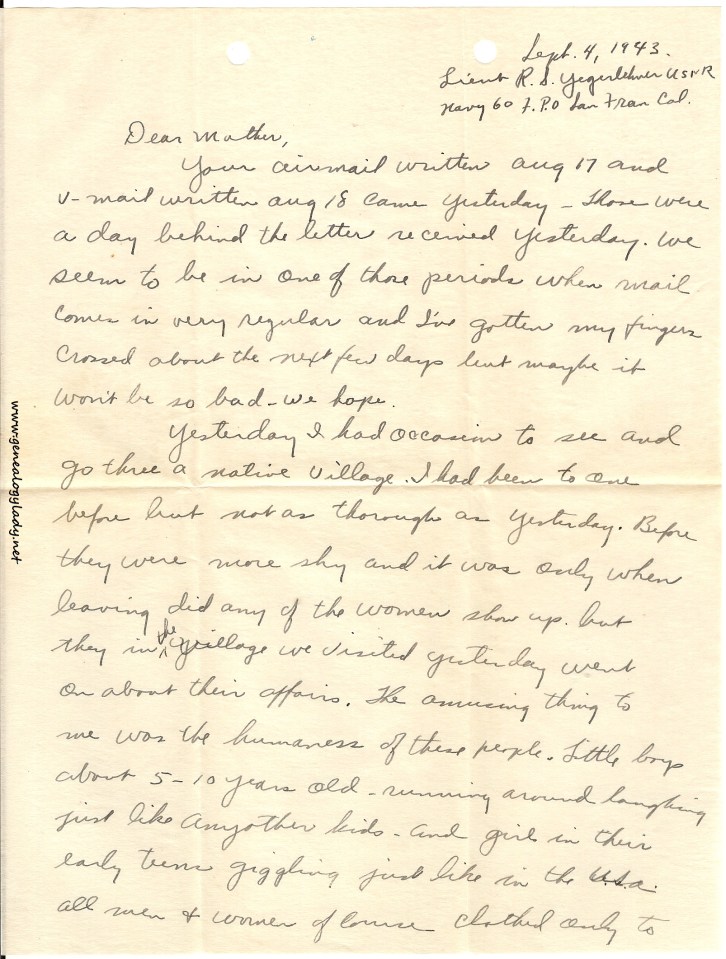 Sept. 4, 1943.
Lieut R. S. Yegerlehner USNR
Navy 60 F.P.O San Fran Cal.
Dear Mother,
Your airmail written Aug 17 and
V-mail written Aug 18 came yesterday - Those were
a day behind the letter received yesterday. We
seem to be in one of those periods when mail
comes in very regular and I've gotten my fingers
crossed about the next few days but maybe it
won't be so bad - we hope.
Yesterday I had occasion to see and
go three a native village. I had been to one
before but not as thorough as yesterday. Before
they were more shy and it was only when
leaving did any of the women show up. but
they in the village we visited yesterday went
on about their affairs. The amusing thing to
me was the humaness of these people. Little boys
about 5-10 years old - running around laughing
just like anyother kids - and girls in their
early teens giggling just like in the U.S.A.
all men & women of course clothed only to
www.genealogylady.net